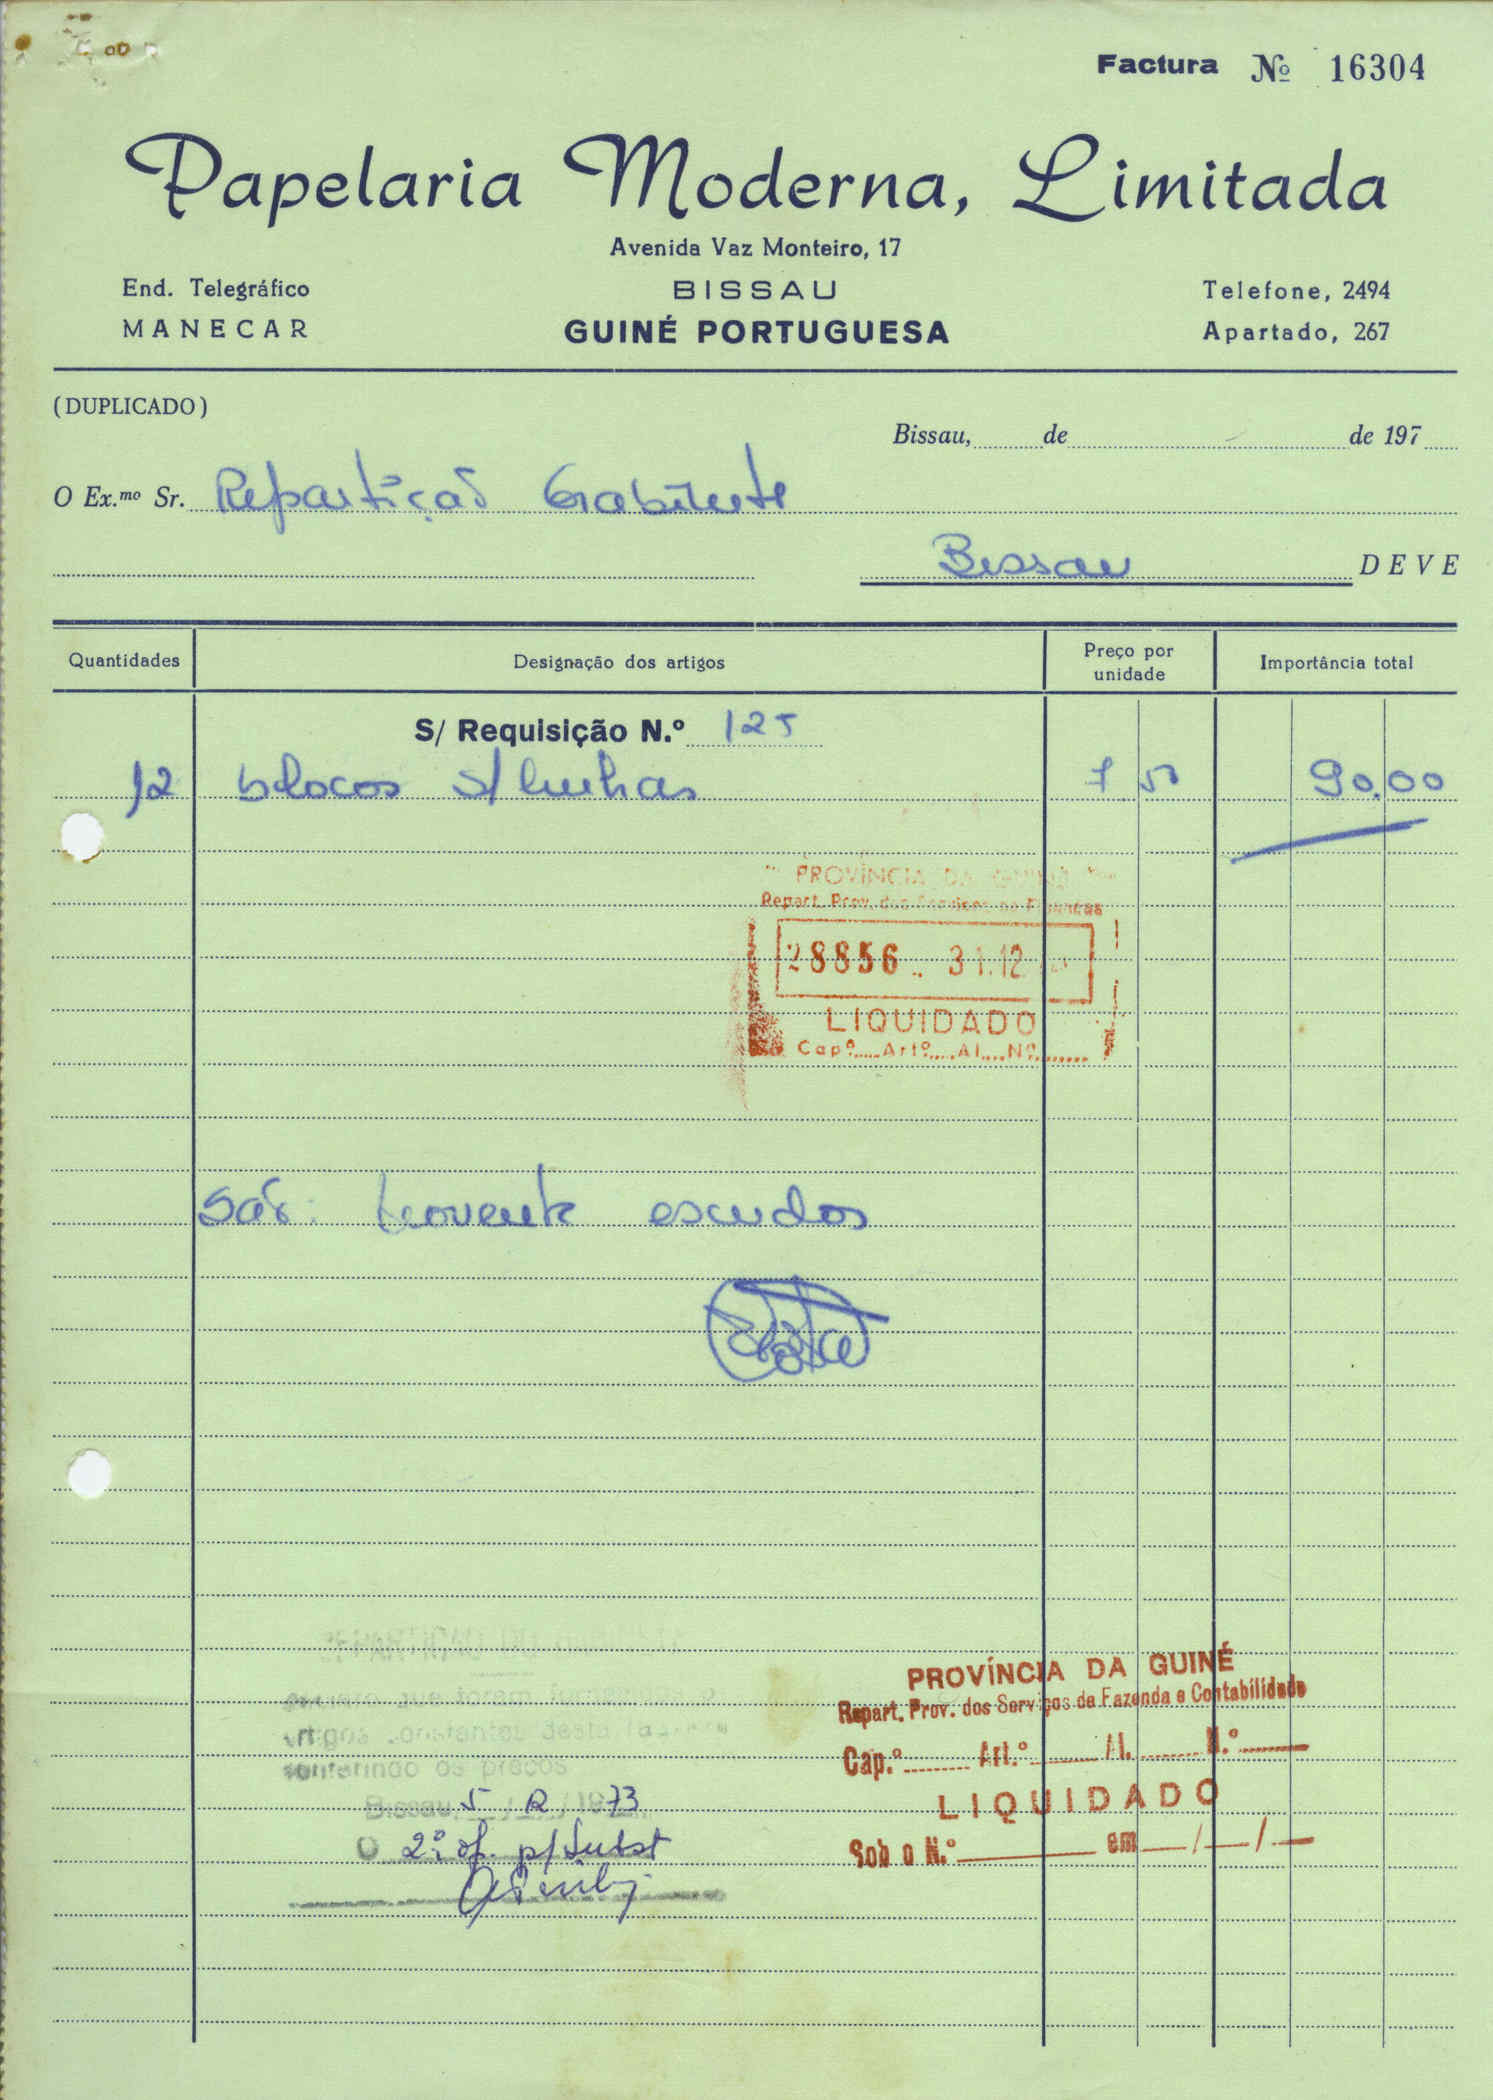 Factura Nº 16304
Papelaria Moderna, Limitada
Avenida Vaz Monteiro, 17
End. Telegráfico BISSAU Telefone, 2494
MANECAR GUINÉ PORTUGUESA Apartado, 267
(DUPLICADO)
Bissau, de de 197
O Ex.mo Sr. Repartição Gabinete
Bissau DEVE
Quantidades Designação dos artigos Preço por unidade Importância total
S/ Requisição N.º 125
12 blocos s/ linhas 7 50 90,00
PROVÍNCIA DA GUINÉ
Repart. Prov. dos Serviços de Finanças
28856 31.12
LIQUIDADO
Cap.º Art.º Al. N.º
São: noventa escudos
PROVÍNCIA DA GUINÉ
Repart. Prov. dos Serviços de Fazenda e Contabilidade
Cap.º Art.º Al. N.º
LIQUIDADO
Sob o N.º em / /
que foram
artigos constantes desta
conferindo os preços
Bissau, 5 12 1973
O 2.º of. p/ subst